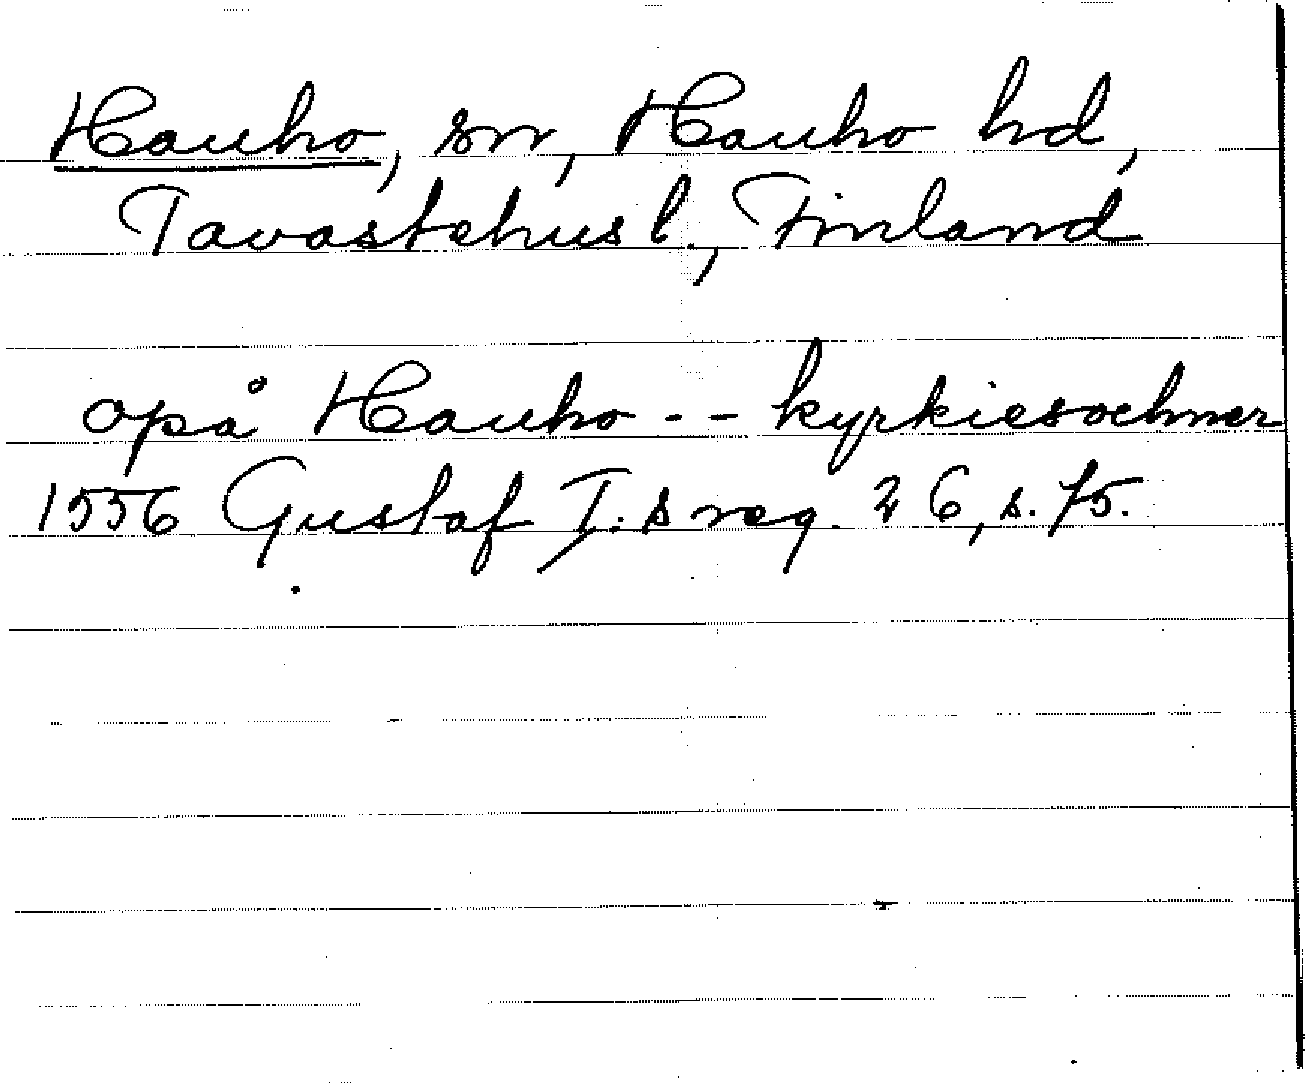 Hauho, sn, Hauho hd,
Tavastehus l., Finland
opå Hauho -- kyrkiesochner
1556 Gustaf I:s reg. 26, s. 75.